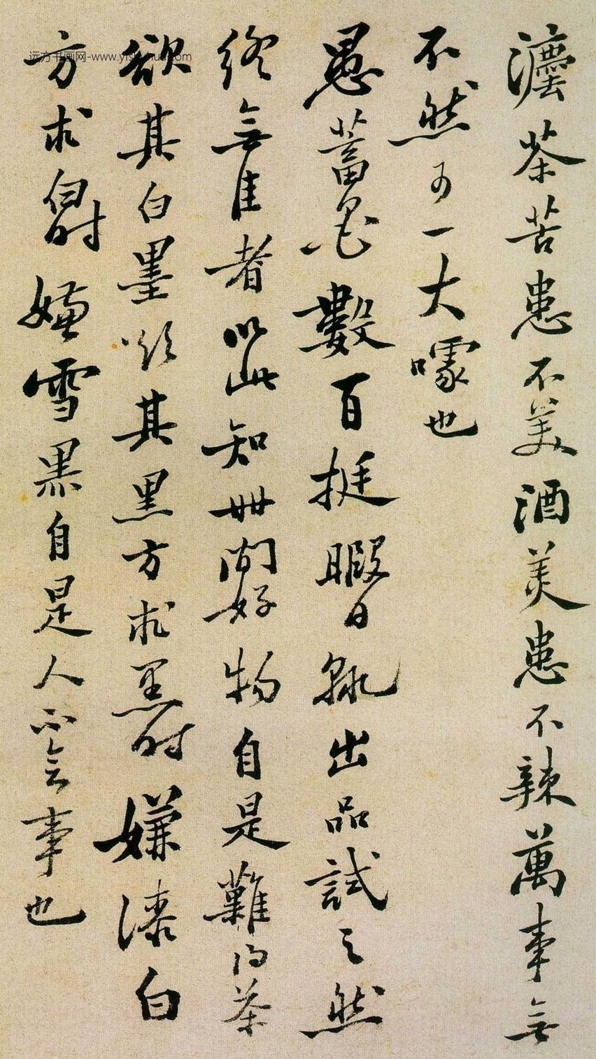 茶苦患不美酒美患不辣萬事無
不然可一大噱也
愚蓄墨數百挺暇日輒出品試之然
終無佳者以此知世間好物自是難得茶
欲其白墨欲其黑方求黑時嫌漆白
方求白時嫌雪黑自是人不會事也
远方书画网